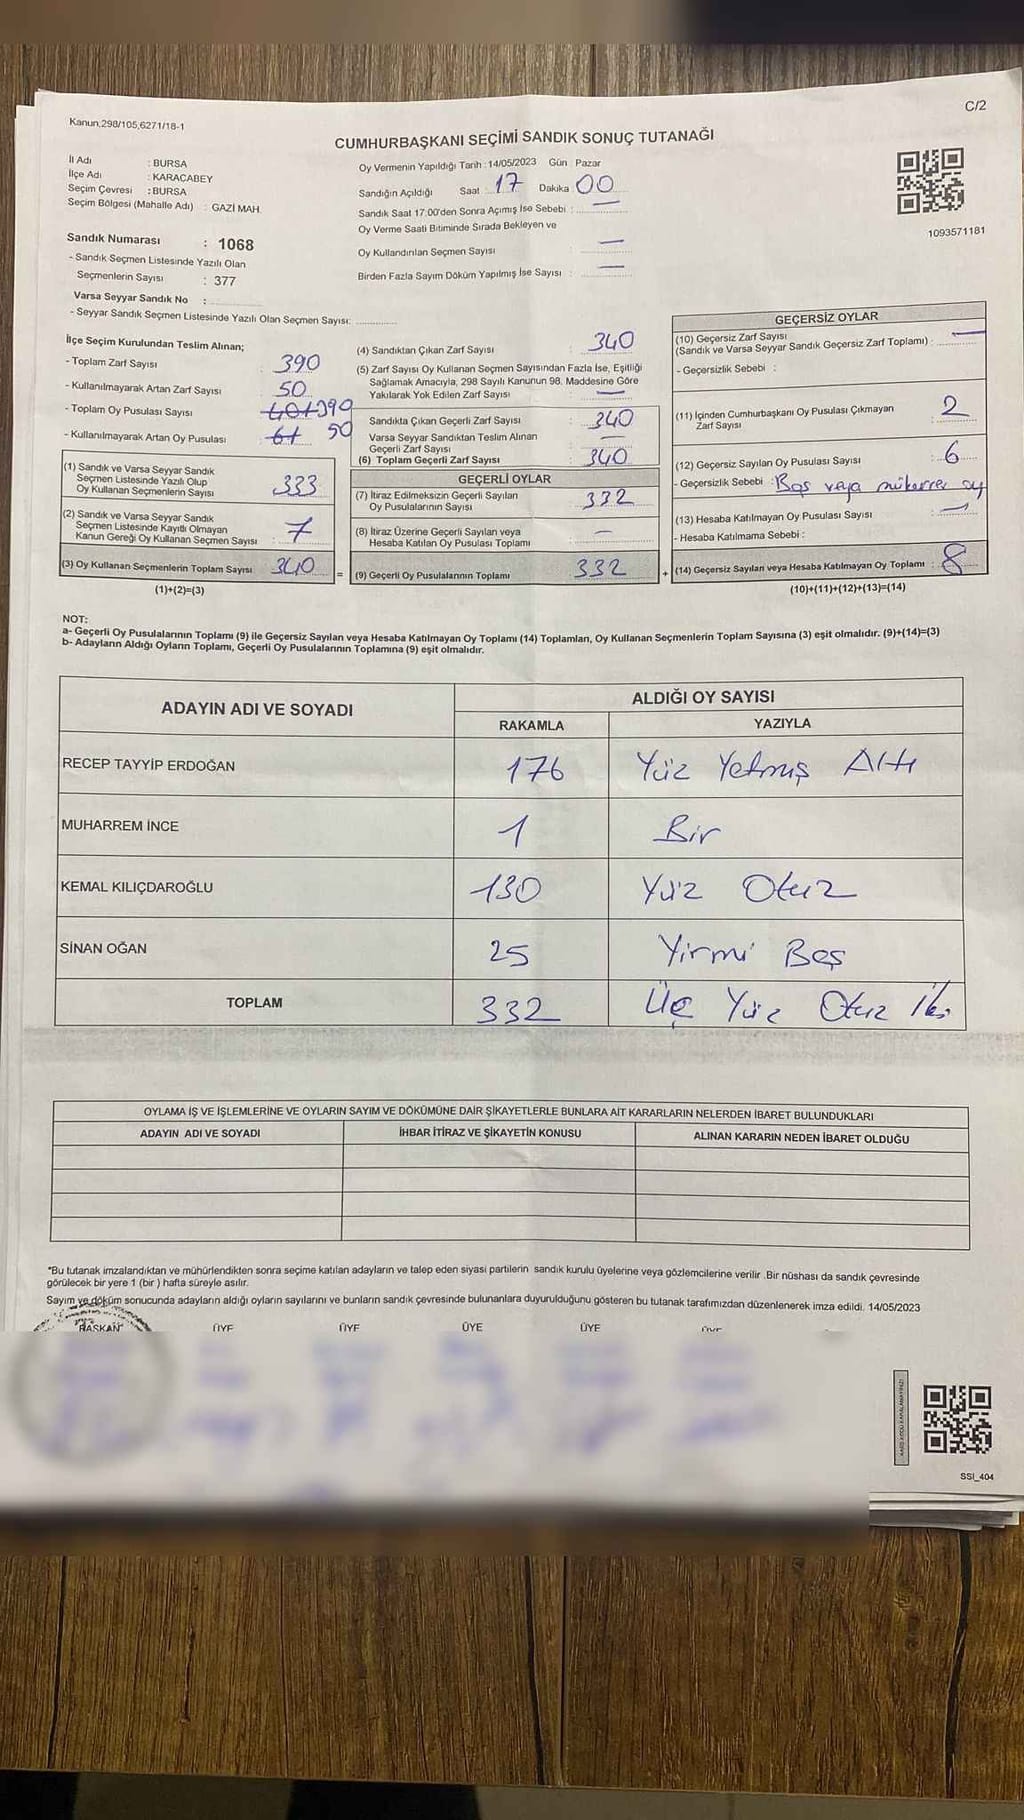 C/2
Kanun.298/105,6271/18-1
CUMHURBAŞKANI SEÇİMİ SANDIK SONUÇ TUTANAĞI
İl Adı : BURSA
İlçe Adı : KARACABEY
Seçim Çevresi : BURSA
Seçim Bölgesi (Mahalle Adı) : GAZİ MAH.
Oy Vermenin Yapıldığı Tarih : 14/05/2023 Gün : Pazar
Sandığın Açıldığı Saat : 17 Dakika 00
Sandık Saat 17:00'den Sonra Açımış İse Sebebi : —
Oy Verme Saati Bitiminde Sırada Bekleyen ve
Oy Kullandırılan Seçmen Sayısı : —
Birden Fazla Sayım Döküm Yapılmış İse Sayısı : —
1093571181
Sandık Numarası : 1068
- Sandık Seçmen Listesinde Yazılı Olan
Seçmenlerin Sayısı : 377
Varsa Seyyar Sandık No :
- Seyyar Sandık Seçmen Listesinde Yazılı Olan Seçmen Sayısı:
İlçe Seçim Kurulundan Teslim Alınan;
- Toplam Zarf Sayısı : 390
- Kullanılmayarak Artan Zarf Sayısı : 50
- Toplam Oy Pusulası Sayısı : 401 390
- Kullanılmayarak Artan Oy Pusulası : 61 50
(1) Sandık ve Varsa Seyyar Sandık
Seçmen Listesinde Yazılı Olup
Oy Kullanan Seçmenlerin Sayısı : 333
(2) Sandık ve Varsa Seyyar Sandık
Seçmen Listesinde Kayıtlı Olmayan
Kanun Gereği Oy Kullanan Seçmen Sayısı : 7
(3) Oy Kullanan Seçmenlerin Toplam Sayısı : 340
(1)+(2)=(3)
(4) Sandıktan Çıkan Zarf Sayısı : 340
(5) Zarf Sayısı Oy Kullanan Seçmen Sayısından Fazla İse, Eşitliği
Sağlamak Amacıyla, 298 Sayılı Kanunun 98. Maddesine Göre
Yakılarak Yok Edilen Zarf Sayısı : —
Sandıkta Çıkan Geçerli Zarf Sayısı : 340
Varsa Seyyar Sandıktan Teslim Alınan
Geçerli Zarf Sayısı : —
(6) Toplam Geçerli Zarf Sayısı : 340
GEÇERLİ OYLAR
(7) İtiraz Edilmeksizin Geçerli Sayılan
Oy Pusulalarının Sayısı : 332
(8) İtiraz Üzerine Geçerli Sayılan veya
Hesaba Katılan Oy Pusulası Toplamı : —
= (9) Geçerli Oy Pusulalarının Toplamı 332 +
GEÇERSİZ OYLAR
(10) Geçersiz Zarf Sayısı
(Sandık ve Varsa Seyyar Sandık Geçersiz Zarf Toplamı) : —
- Geçersizlik Sebebi :
(11) İçinden Cumhurbaşkanı Oy Pusulası Çıkmayan
Zarf Sayısı : 2
(12) Geçersiz Sayılan Oy Pusulası Sayısı : 6
- Geçersizlik Sebebi : Boş veya mükerrer oy
(13) Hesaba Katılmayan Oy Pusulası Sayısı : —
- Hesaba Katılmama Sebebi :
(14) Geçersiz Sayılan veya Hesaba Katılmayan Oy Toplamı : 8
(10)+(11)+(12)+(13)=(14)
NOT:
a- Geçerli Oy Pusulalarının Toplamı (9) ile Geçersiz Sayılan veya Hesaba Katılmayan Oy Toplamı (14) Toplamları, Oy Kullanan Seçmenlerin Toplam Sayısına (3) eşit olmalıdır. (9)+(14)=(3)
b- Adayların Aldığı Oyların Toplamı, Geçerli Oy Pusulalarının Toplamına (9) eşit olmalıdır.
ADAYIN ADI VE SOYADI
ALDIĞI OY SAYISI
RAKAMLA YAZIYLA
RECEP TAYYİP ERDOĞAN 176 Yüz Yetmiş Altı
MUHARREM İNCE 1 Bir
KEMAL KILIÇDAROĞLU 130 Yüz Otuz
SİNAN OĞAN 25 Yirmi Beş
TOPLAM 332 Üç Yüz Otuz İki
OYLAMA İŞ VE İŞLEMLERİNE VE OYLARIN SAYIM VE DÖKÜMÜNE DAİR ŞİKAYETLERLE BUNLARA AİT KARARLARIN NELERDEN İBARET BULUNDUKLARI
ADAYIN ADI VE SOYADI İHBAR İTİRAZ VE ŞİKAYETİN KONUSU ALINAN KARARIN NEDEN İBARET OLDUĞU
*Bu tutanak imzalandıktan ve mühürlendikten sonra seçime katılan adayların ve talep eden siyasi partilerin sandık kurulu üyelerine veya gözlemcilerine verilir .Bir nüshası da sandık çevresinde
görülecek bir yere 1 (bir ) hafta süreyle asılır.
Sayım ve döküm sonucunda adayların aldığı oyların sayılarını ve bunların sandık çevresinde bulunanlara duyurulduğunu gösteren bu tutanak tarafımızdan düzenlenerek imza edildi. 14/05/2023
BAŞKAN ÜYE ÜYE ÜYE ÜYE ÜYE
SSI_404